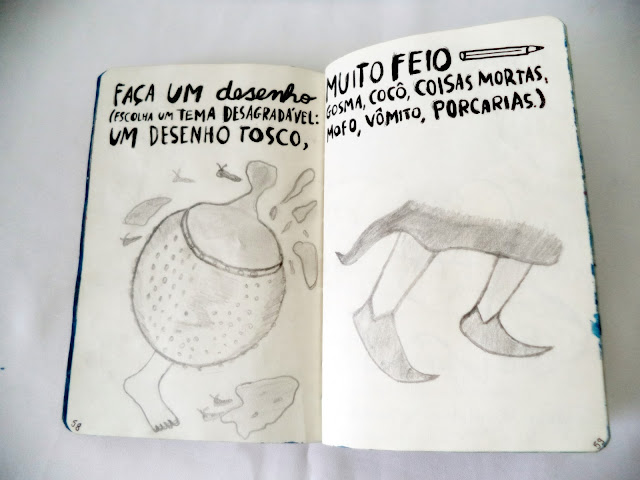 FAÇA UM desenho
(ESCOLHA UM TEMA DESAGRADÁVEL:
UM DESENHO TOSCO,
58
MUITO FEIO
GOSMA, COCÔ, COISAS MORTAS,
MOFO, VÔMITO, PORCARIAS.)
59